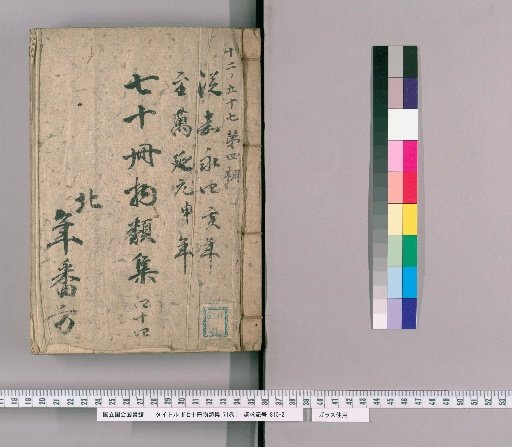 十二ノ五十七 第四棚
従嘉永四亥年
至萬延元申年
七十冊物類集 四十四
北
年番方
国立国会図書館 タイトル『七十冊物類集 請求記号 810-2
ガラス使用